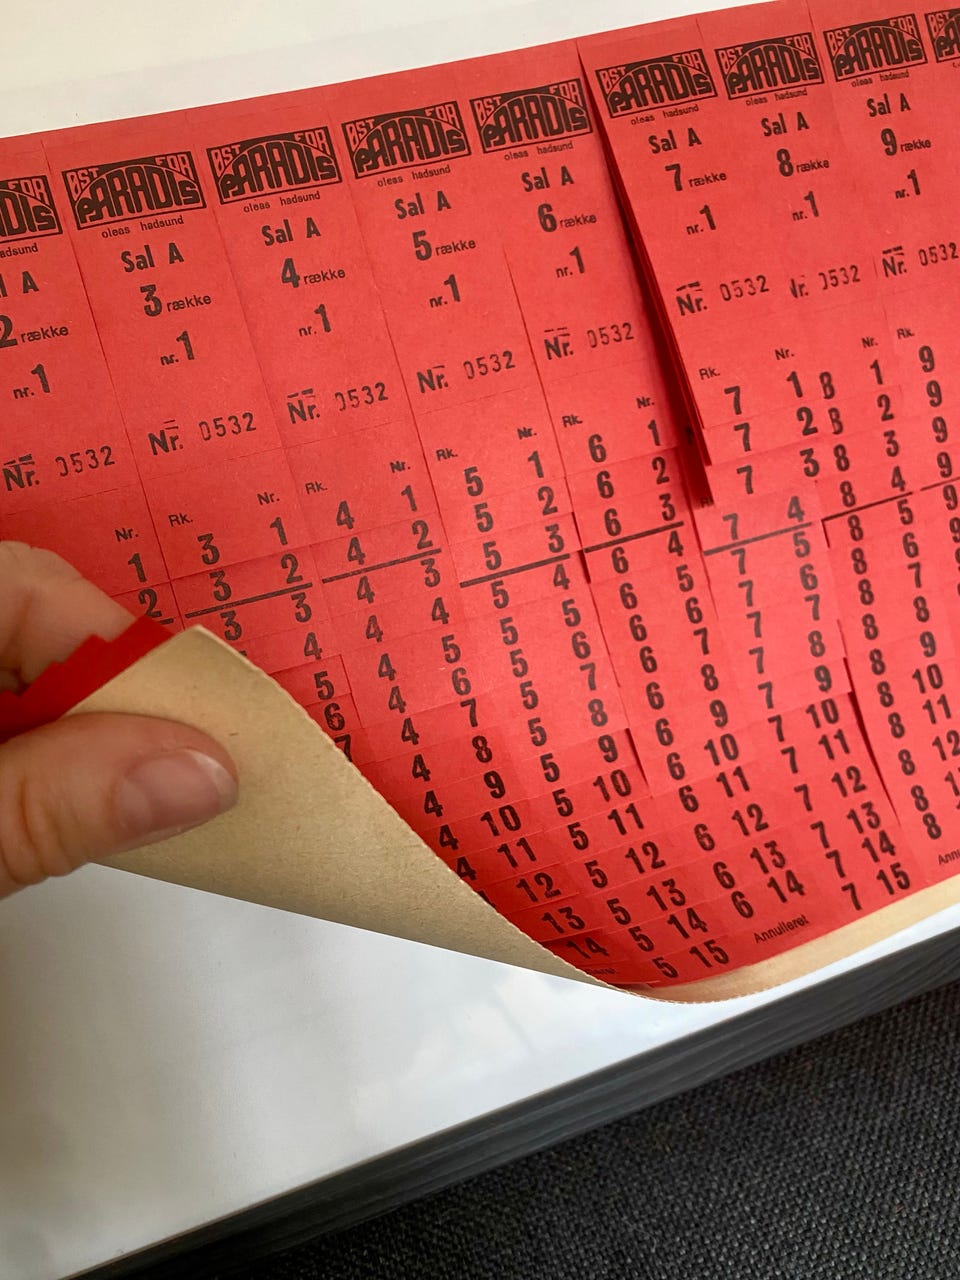 DIS
adsund
A
2 række
nr.1
Nr. 0532
Nr.
1
2
ØST FOR
PARADIS
oleas hadsund
Sal A
3 række
nr.1
Nr. 0532
Rk. Nr.
3 1
3 2
3 3
4
5
6
7
ØST FOR
PARADIS
oleas hadsund
Sal A
4 række
nr.1
Nr. 0532
Rk. Nr.
4 1
4 2
4 3
4 4
4 5
4 6
4 7
4 8
4 9
4 10
4 11
12
13
14
ØST FOR
PARADIS
oleas hadsund
Sal A
5 række
nr.1
Nr. 0532
Rk. Nr.
5 1
5 2
5 3
5 4
5 5
5 6
5 7
5 8
5 9
5 10
5 11
5 12
5 13
5 14
5 15
ØST FOR
PARADIS
oleas hadsund
Sal A
6 række
nr.1
Nr. 0532
Rk. Nr.
6 1
6 2
6 3
6 4
6 5
6 6
6 7
6 8
6 9
6 10
6 11
6 12
6 13
6 14
Annulleret
ØST FOR
PARADIS
oleas hadsund
Sal A
7 række
nr.1
Nr. 0532
Rk. Nr.
7 1
7 2
7 3
7 4
7 5
7 6
7 7
7 8
7 9
7 10
7 11
7 12
7 13
7 14
7 15
ØST FOR
PARADIS
oleas hadsund
Sal A
8 række
nr.1
Nr. 0532
Nr.
8 1
8 2
8 3
8 4
8 5
8 6
8 7
8 8
8 9
8 10
8 11
8 12
8
8
Annu
ØST FOR
PARADIS
oleas hadsund
Sal A
9 række
nr.1
Nr. 0532
Rk.
9
9
9
9
9
9
9